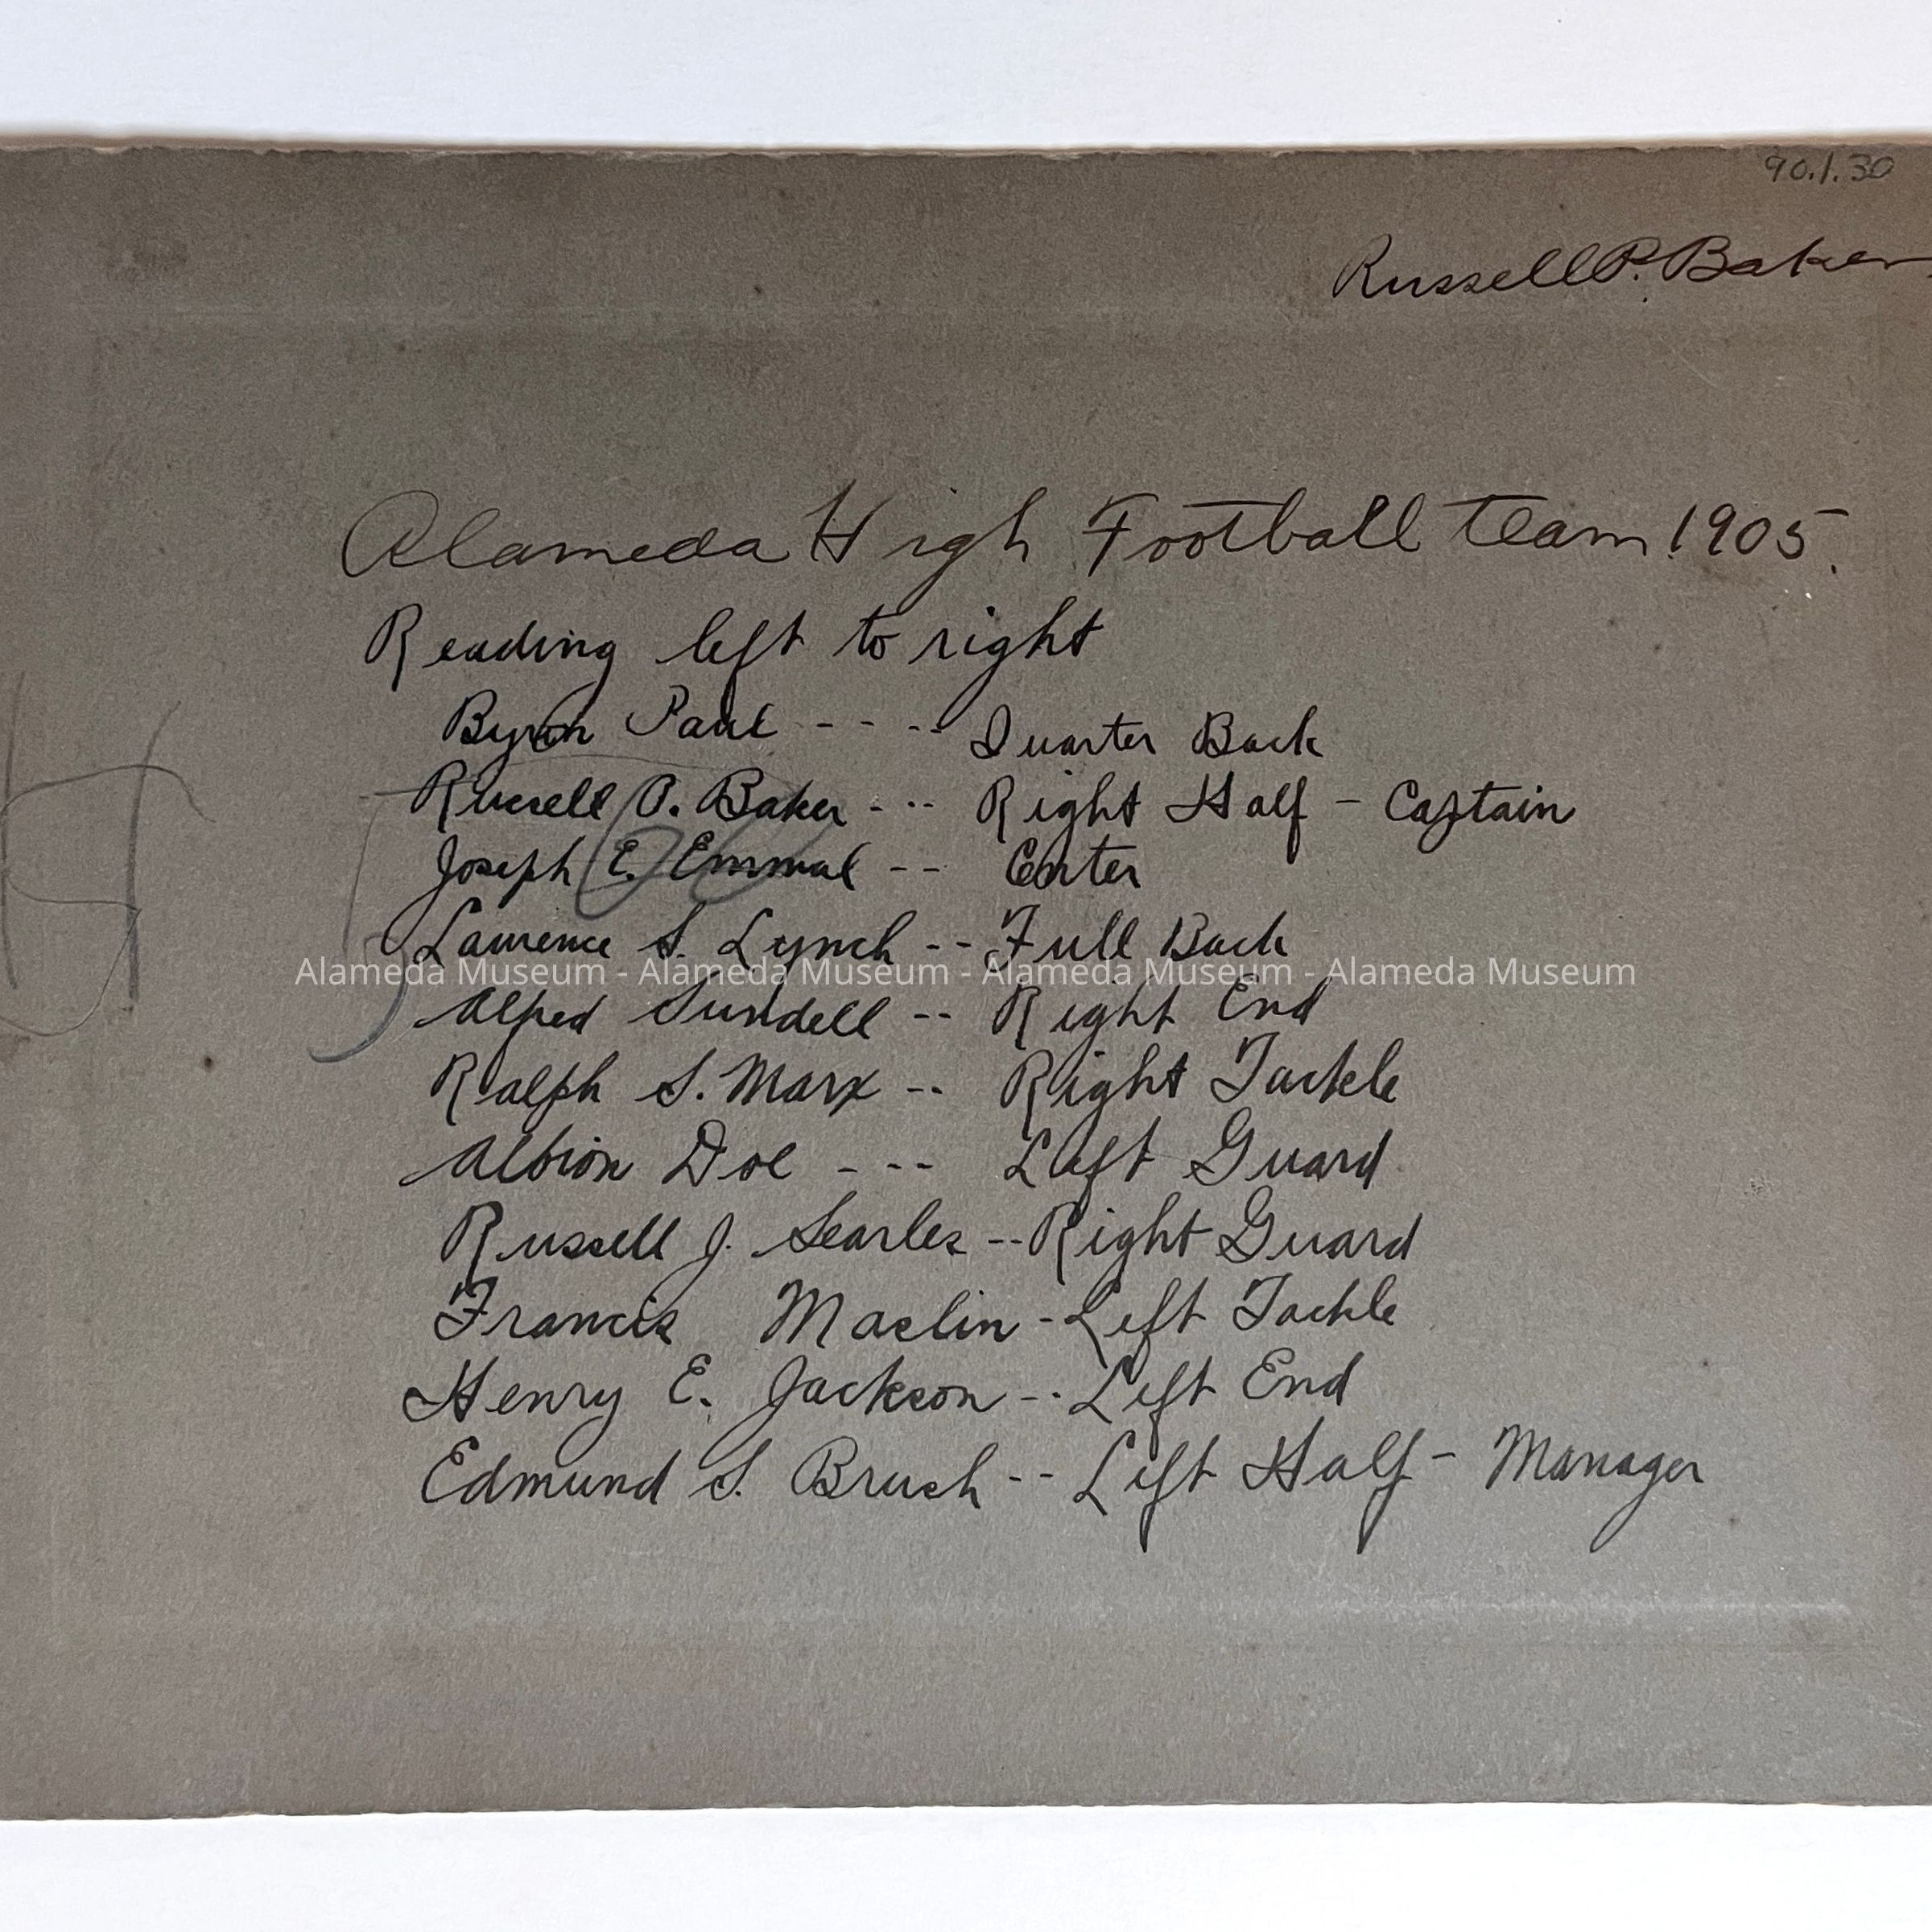 90.1.30
Russell P. Baker
Alameda High Football Team 1905.
Reading left to right
Byron Paul - - - -- Quarter Back
Russell P. Baker - -- Right Half - Captain
Joseph E. Emmal -- Center
Lawrence S. Lynch -- Full Back
Alameda Museum - Alameda Museum - Alameda Museum - Alameda Museum
Alfred Sundell -- Right End
Ralph S. Marx -- Right Tackle
Albion Doe - -- Left Guard
Russell J. Searles -- Right Guard
Francis Maslin - Left Tackle
Henry E. Jackson -- Left End
Edmund S. Brush -- Left Half - Manager